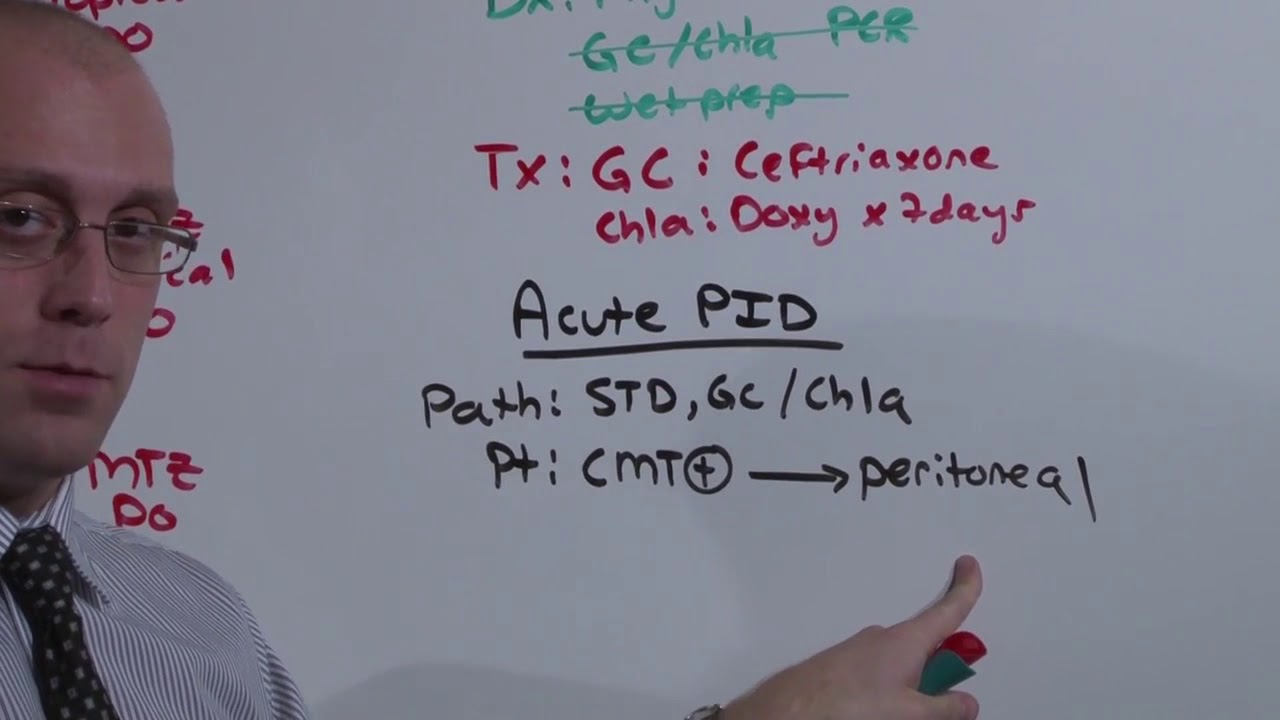 DO
Dx:
GC/Chla PCR
Wet prep
Tx: GC: Ceftriaxone
Chla: Doxy x 7days
Acute PID
Path: STD, GC/Chla
Pt: CMT⊕ → peritoneal
MTZ
PO